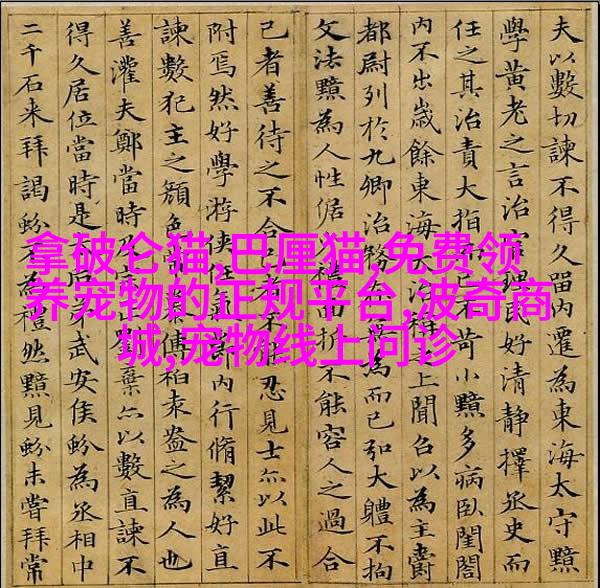 拿破仑猫,巴厘猫,免费领
养宠物的正规平台,波奇商
城,宠物线上问诊
夫以數切諫不得久留内遷為東海太守黯
學黃老之言治官理民好清靜擇丞史而
任之其治責大指苛小黯多病臥閨閤
内不出歲餘東海大治稱之上聞召以為主爵
都尉列於九卿治務為而已弘大體不拘
文法黯為人性倨禮面折不能容人之過合
己者善待之不合己者不能忍見士亦以此不
附焉然好學游俠任節内行脩絜好直
諫數犯主之顏色慕傅柏袁盎之為人也
善灌夫鄭當時及棄亦以數直諫不
得久居位當時是弟武安侯蚡為丞相中
二千石来拜謁蚡為禮然黯見蚡未嘗拜常